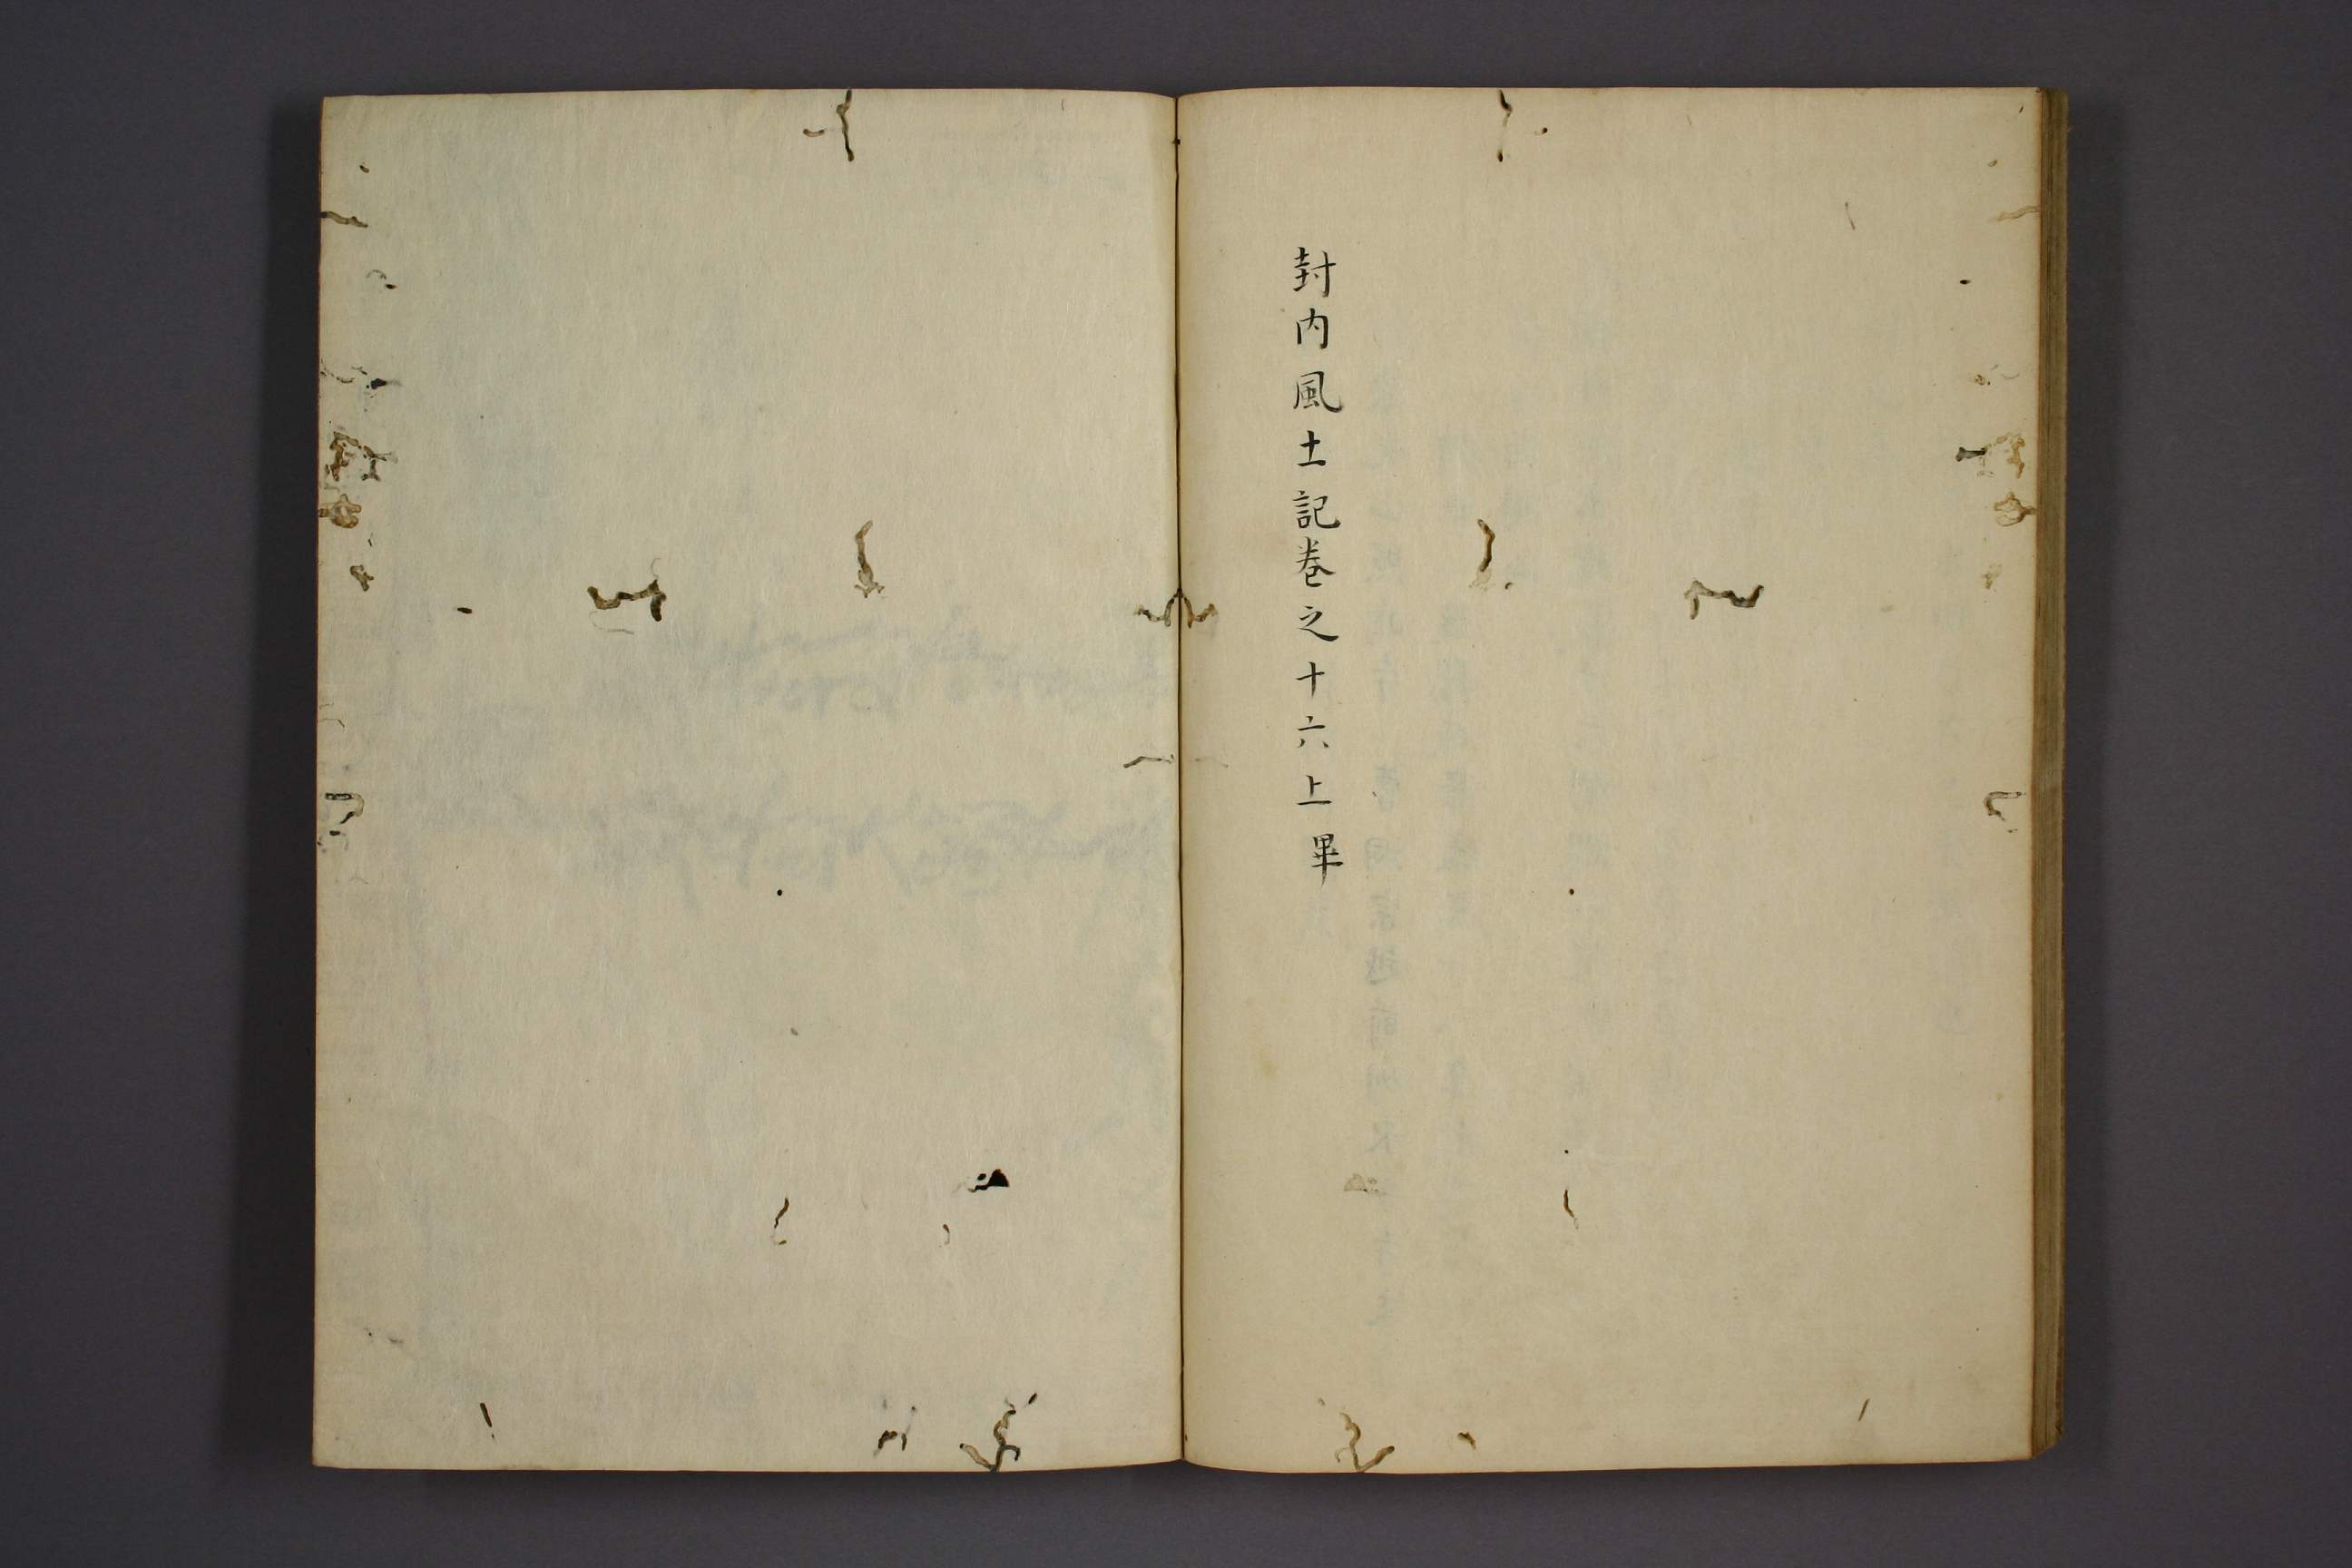 封内風土記巻之十六上畢